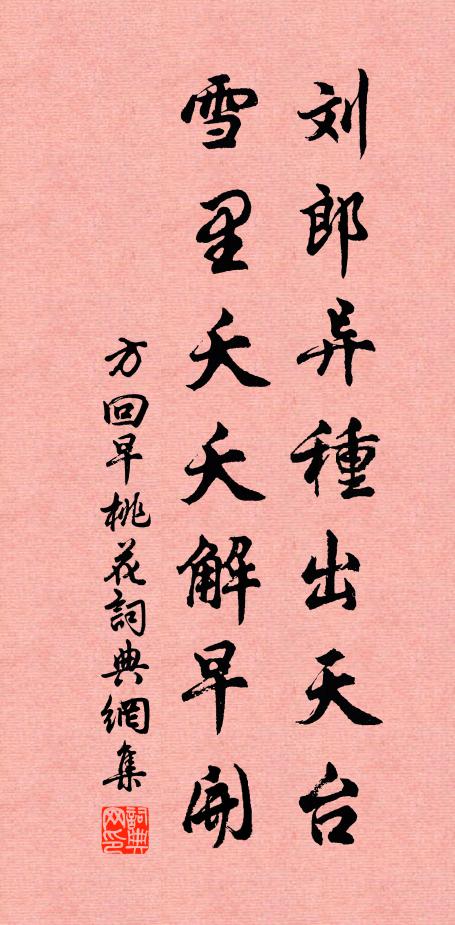 刘郎异種出天台
雪里夭夭解早開
方回早桃花詞典網集
詞典网印